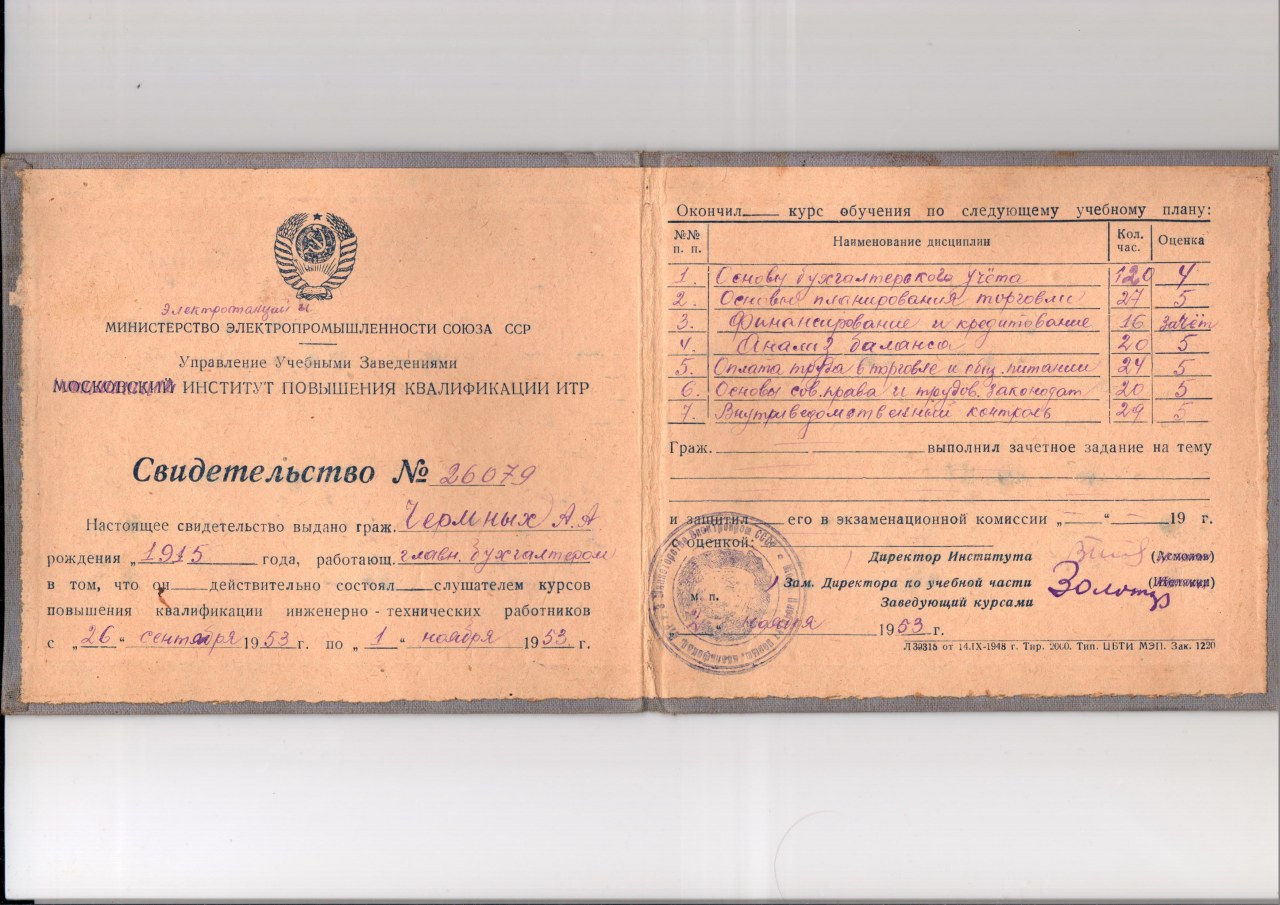 Электростанций и
МИНИСТЕРСТВО ЭЛЕКТРОПРОМЫШЛЕННОСТИ СОЮЗА ССР
Управление Учебными Заведениями
МОСКОВСКИЙ ИНСТИТУТ ПОВЫШЕНИЯ КВАЛИФИКАЦИИ ИТР
Свидетельство № 26079
Настоящее свидетельство выдано граж. Чермных А.А
рождения „1915 года, работающ. главн. бухгалтером
в том, что он действительно состоял слушателем курсов
повышения квалификации инженерно-технических работников
с „26“ сентября 1953 г. по „1“ ноября 1953 г.
Окончил курс обучения по следующему учебному плану:
№№ п. п. Наименование дисциплин Кол. час. Оценка
1. Основы бухгалтерского учёта 120 4
2. Основы планирования торговли 27 5
3. Финансирование и кредитование 16 зачёт
4. Анализ баланса 20 5
5. Оплата труда в торговле и общ. питании 24 5
6. Основы сов. права и трудов. законодат 20 5
7. Внутриведомственный контроль 29 5
Граж. выполнил зачетное задание на тему
и защитил его в экзаменационной комиссии „ “ 19 г.
с оценкой:
Директор Института (Асмолов)
Зам. Директора по учебной части
Заведующий курсами
м. п.
ноября 1953 г.
Л39315 от 14.IX-1948 г. Тир. 2000. Тип. ЦБТИ МЭП. Зак. 1220